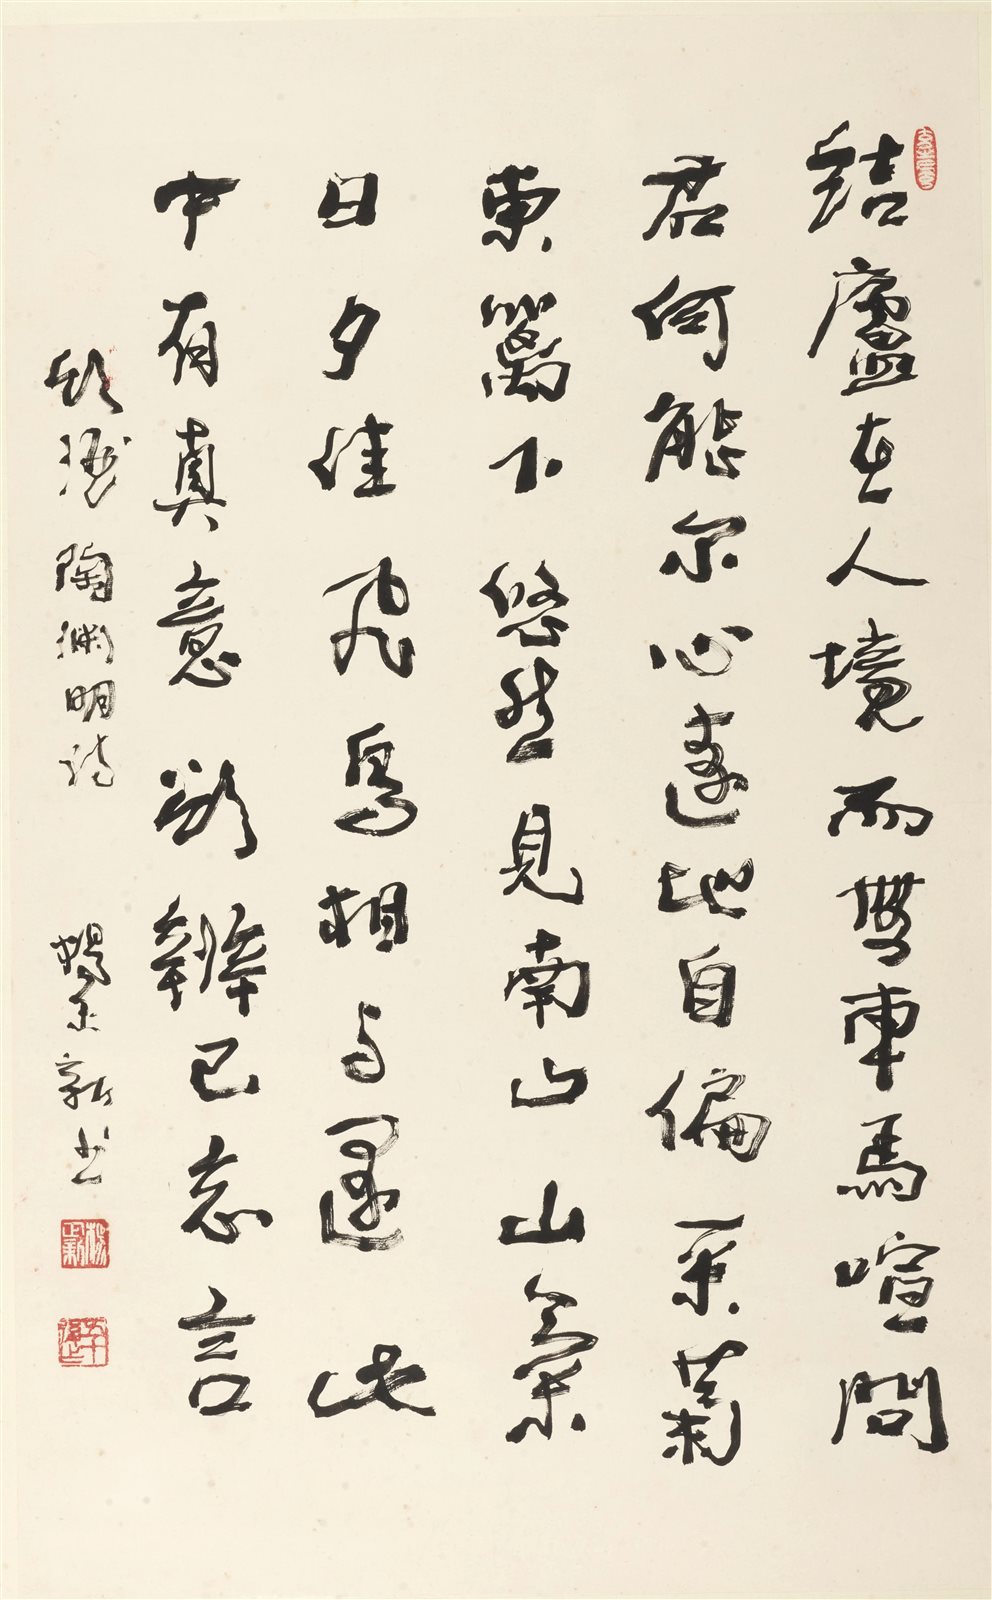 結廬在人境而無車馬喧問
君何能尔心遠地自偏采菊
東籬下悠然見南山山氣
日夕佳飛鳥相与還此
中有真意欲辨已忘言
飲酒陶淵明詩 楊正新书
楊正新